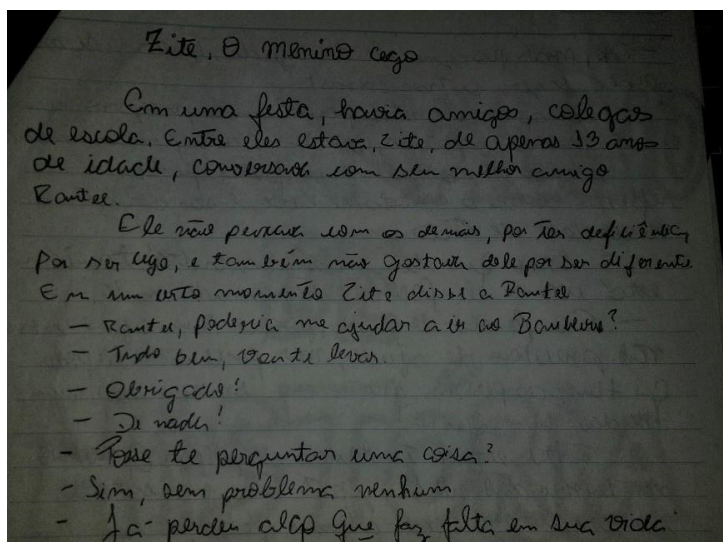 Zite, O menino cego
Em uma festa, havia amigos, colegas
de escola. Entre eles estava, Zite, de apenas 13 anos
de idade, conversava com seu melhor amigo
Rautee.
Ele não com os demais, por ter deficiência,
por ser cego, e também não gostava dele por ser diferente.
Em um certo momento Zite disse a Rautee
- Rautee, poderia me ajudar a ir ao Banheiro?
- Tudo bem, vou te levar.
- Obrigado!
- De nada!
- Posse te perguntar uma coisa?
- Sim, sem problema nenhum
- Ja perdeu algo que faz falta em sua vida